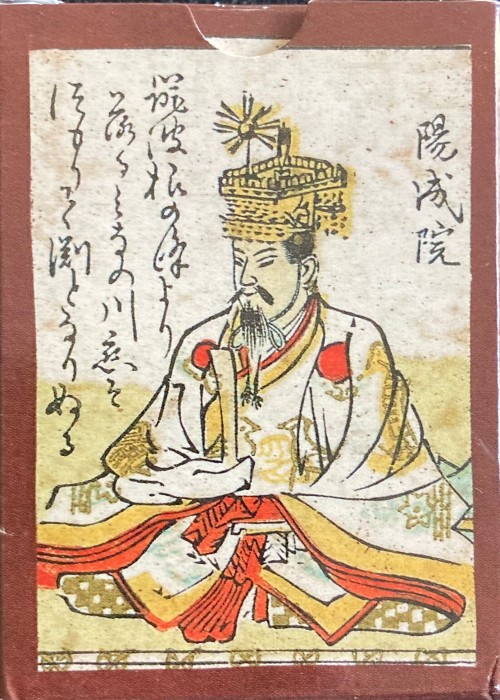 陽成院
筑波祢の峰より
落るみなの川恋そ
つもりて淵となりぬる